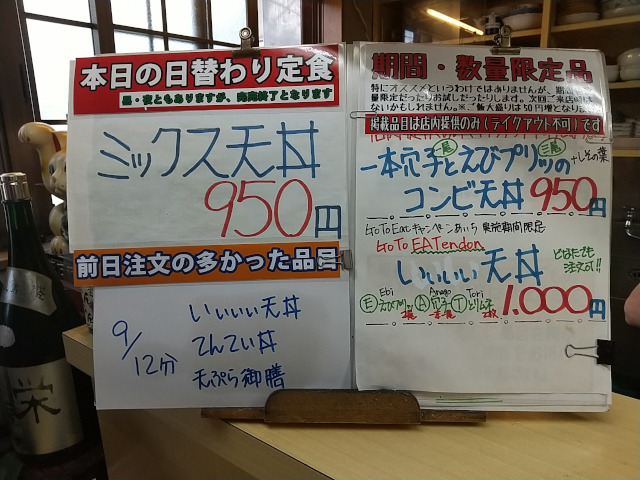 本日の日替わり定食
昼・夜ともありますが、売切終了となります
ミックス天丼
950円
前日注文の多かった品目
9/12分
いいいい天丼
てんてい丼
天ぷら御膳
期間・数量限定品
特にオススメというわけではありませんが、期間
量限定だったりお試しだったりします。次回ご来店時は
ないかもしれません。※ご飯大盛りは50円増となります
掲載品目は店内提供のみ(テイクアウト不可)です
一本穴子とえびプリッの
+しその葉
コンビ天丼 950円
GoToEatキャンペーンあいち 実施期間限定
GoTo EATendon
いいいい天丼
どなたでも
注文可!!
Ebi Anago Tori
Eえびプリッ2尾 A穴子一本 Tとりム子2枚
1.000円
栄